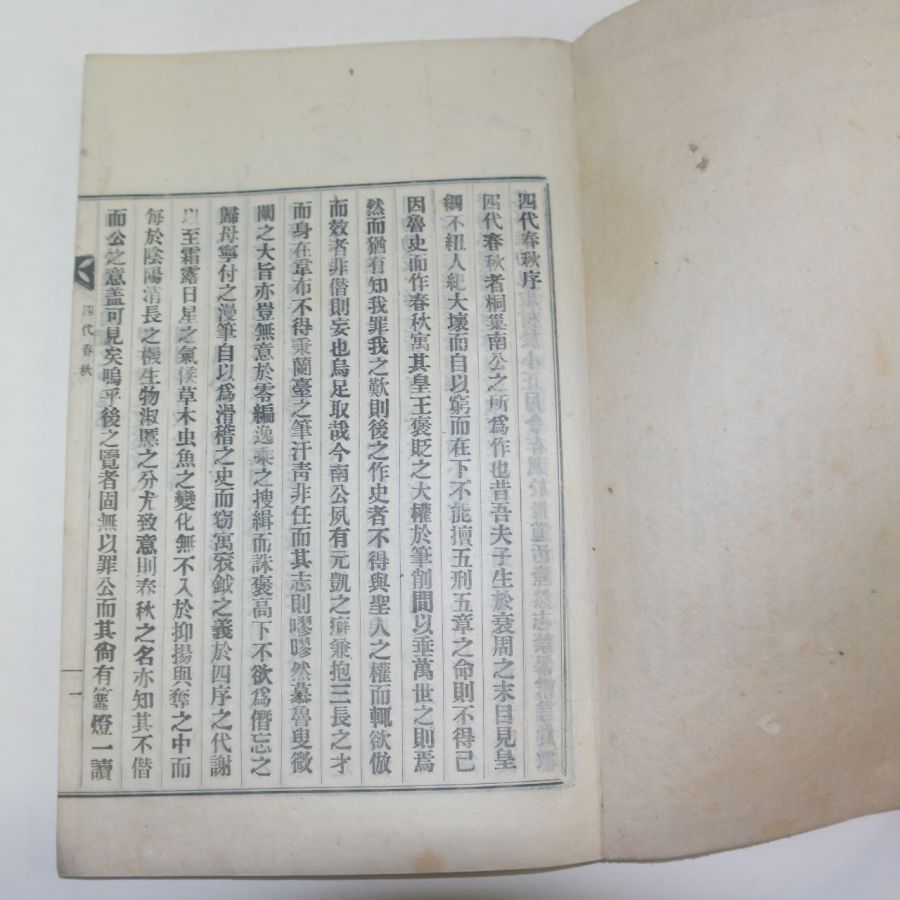 四代春秋序
四代春秋者桐巢南公之所爲作也昔吾夫子生於衰周之末目見皇
綱不紐人紀大壞而自以窮而在下不能擅五刑五章之命則不得已
因魯史而作春秋寓其皇王褒貶之大權於筆削間以垂萬世之則焉
然而猶有知我罪我之歎則後之作史者不得與聖人之權而輒欲倣
而效者非僭則妄也烏足取哉今南公夙有元凱之癖兼抱三長之才
而身在韋布不得秉蘭臺之筆汗靑非任而其志則嘐嘐然慕魯叟微
闡之大旨亦豈無意於零編逸乘之搜緝而誅褒高下不欲爲僭忘之
歸毋寧付之漫筆自以爲滑稽之史而窃寓袞鉞之義於四序之代謝
以至霜露日星之氣候草木虫魚之變化無不入於抑揚與奪之中而
每於陰陽消長之機生物淑慝之分尤致意則春秋之名亦知其不僭
而公之意盖可見矣嗚乎後之覽者固無以罪公而其尙有篝燈一讀
四代春秋
一